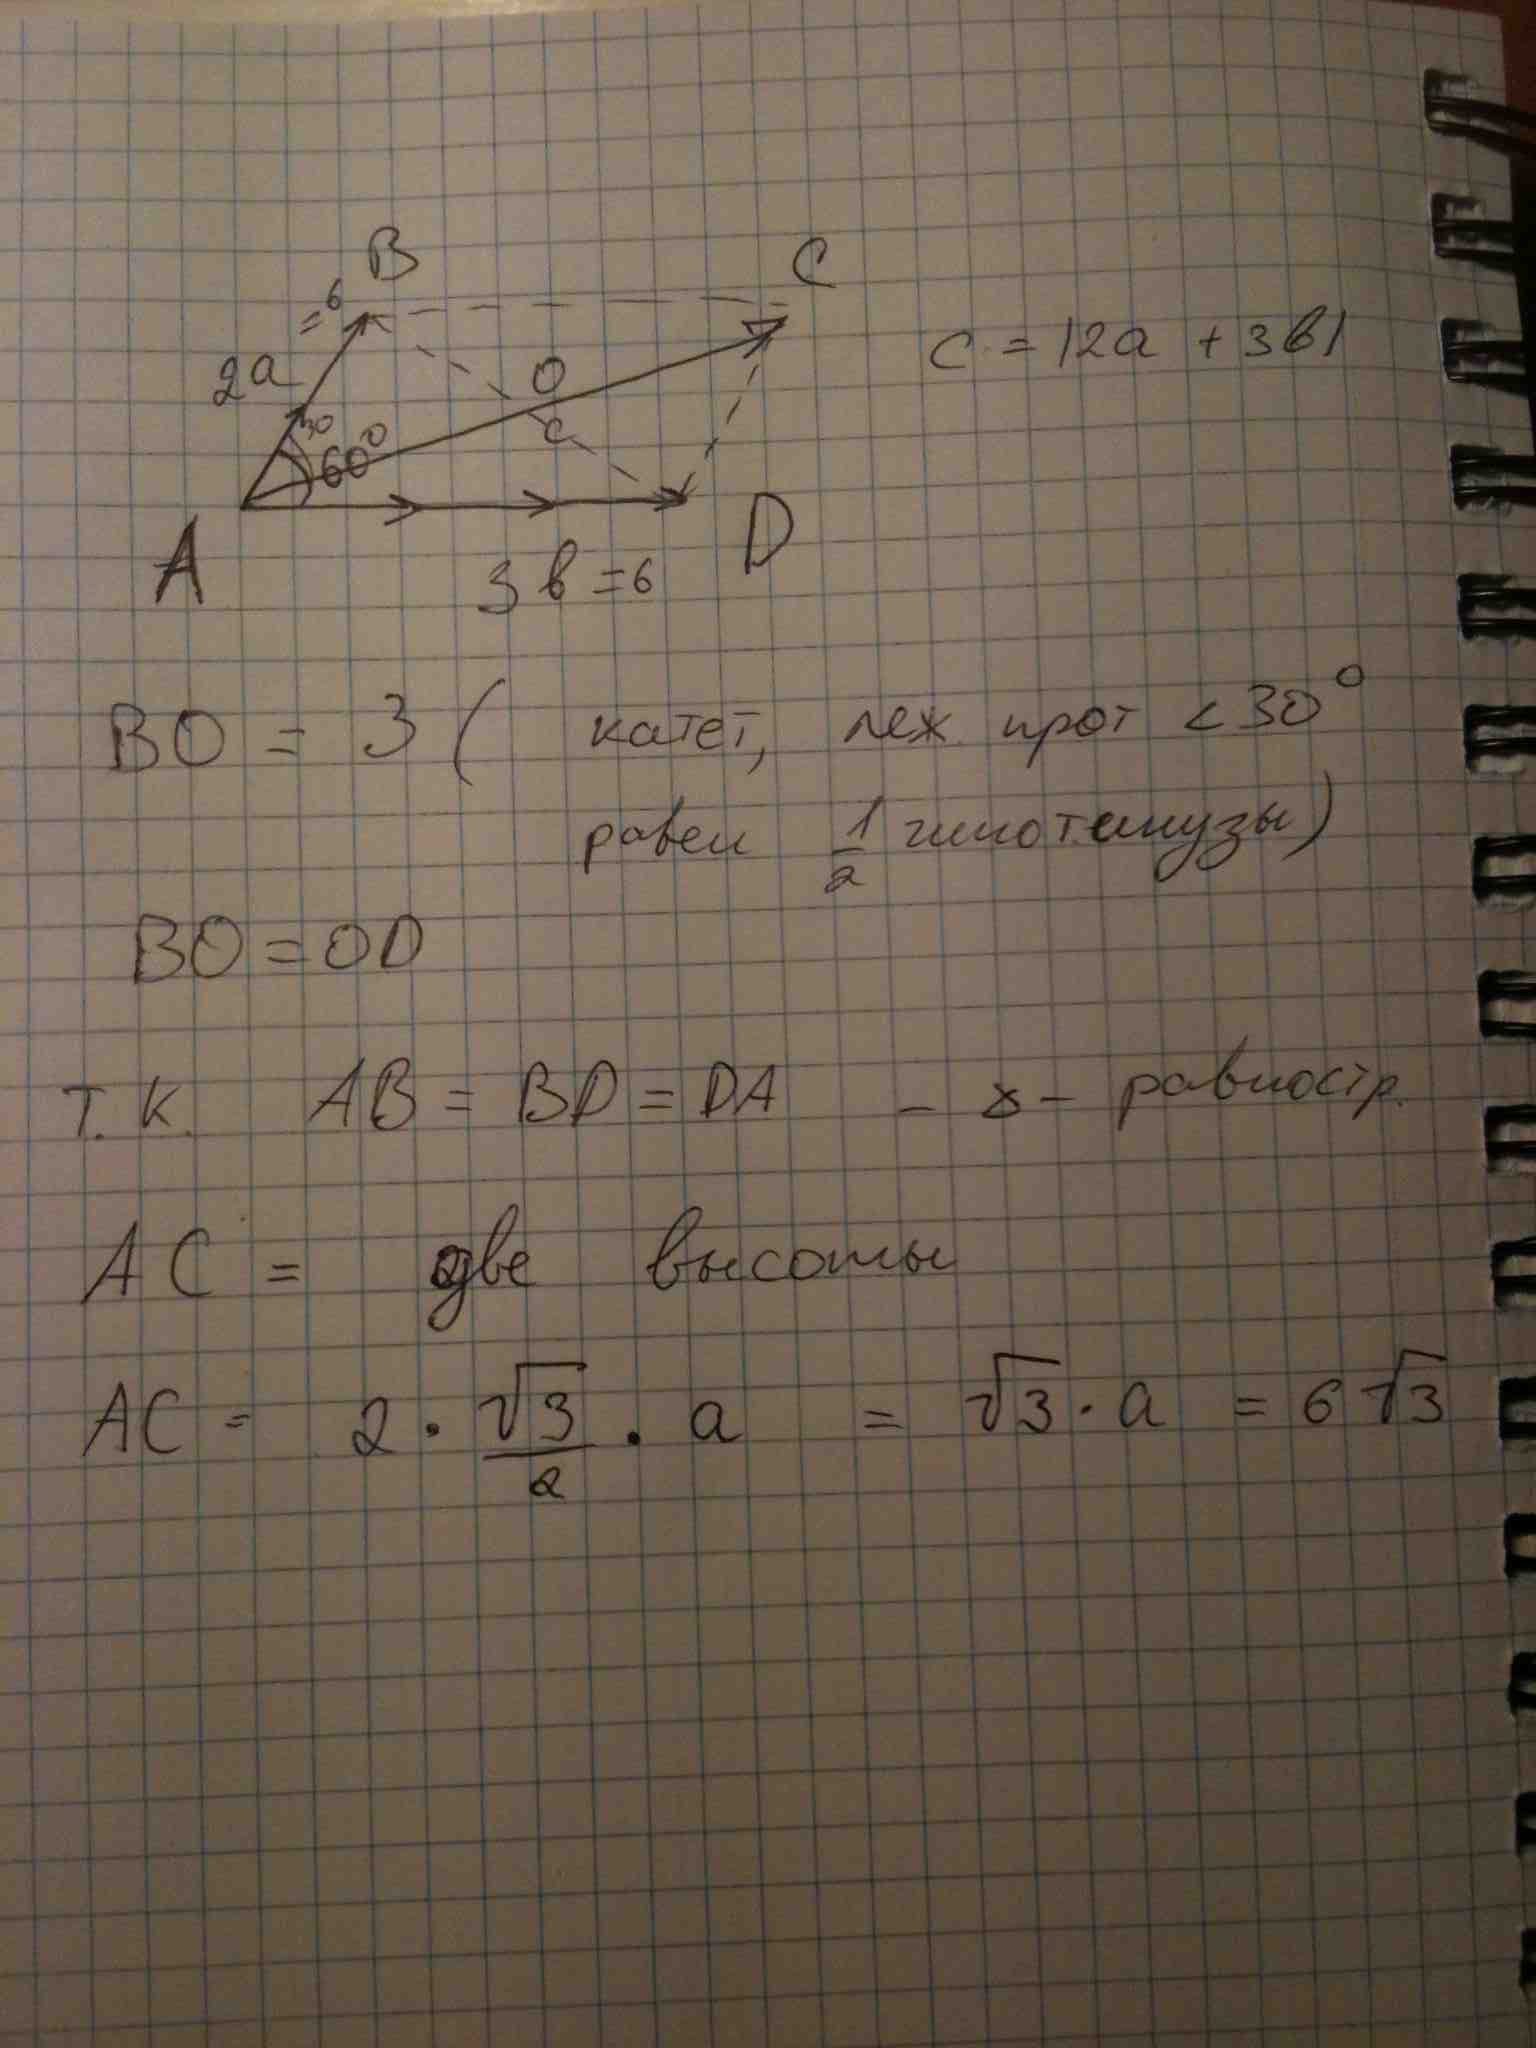 B
C
= 6
2a
O
c = |2a + 3b|
30
60°
c
A
D
3b = 6
BO = 3 ( катет, леж. прот < 30°
равен 1/2 гипотенузы)
BO = OD
т.к. AB = BD = DA - - равностр.
AC = две высоты
AC = 2 · √3/2 · a = √3 · a = 6√3